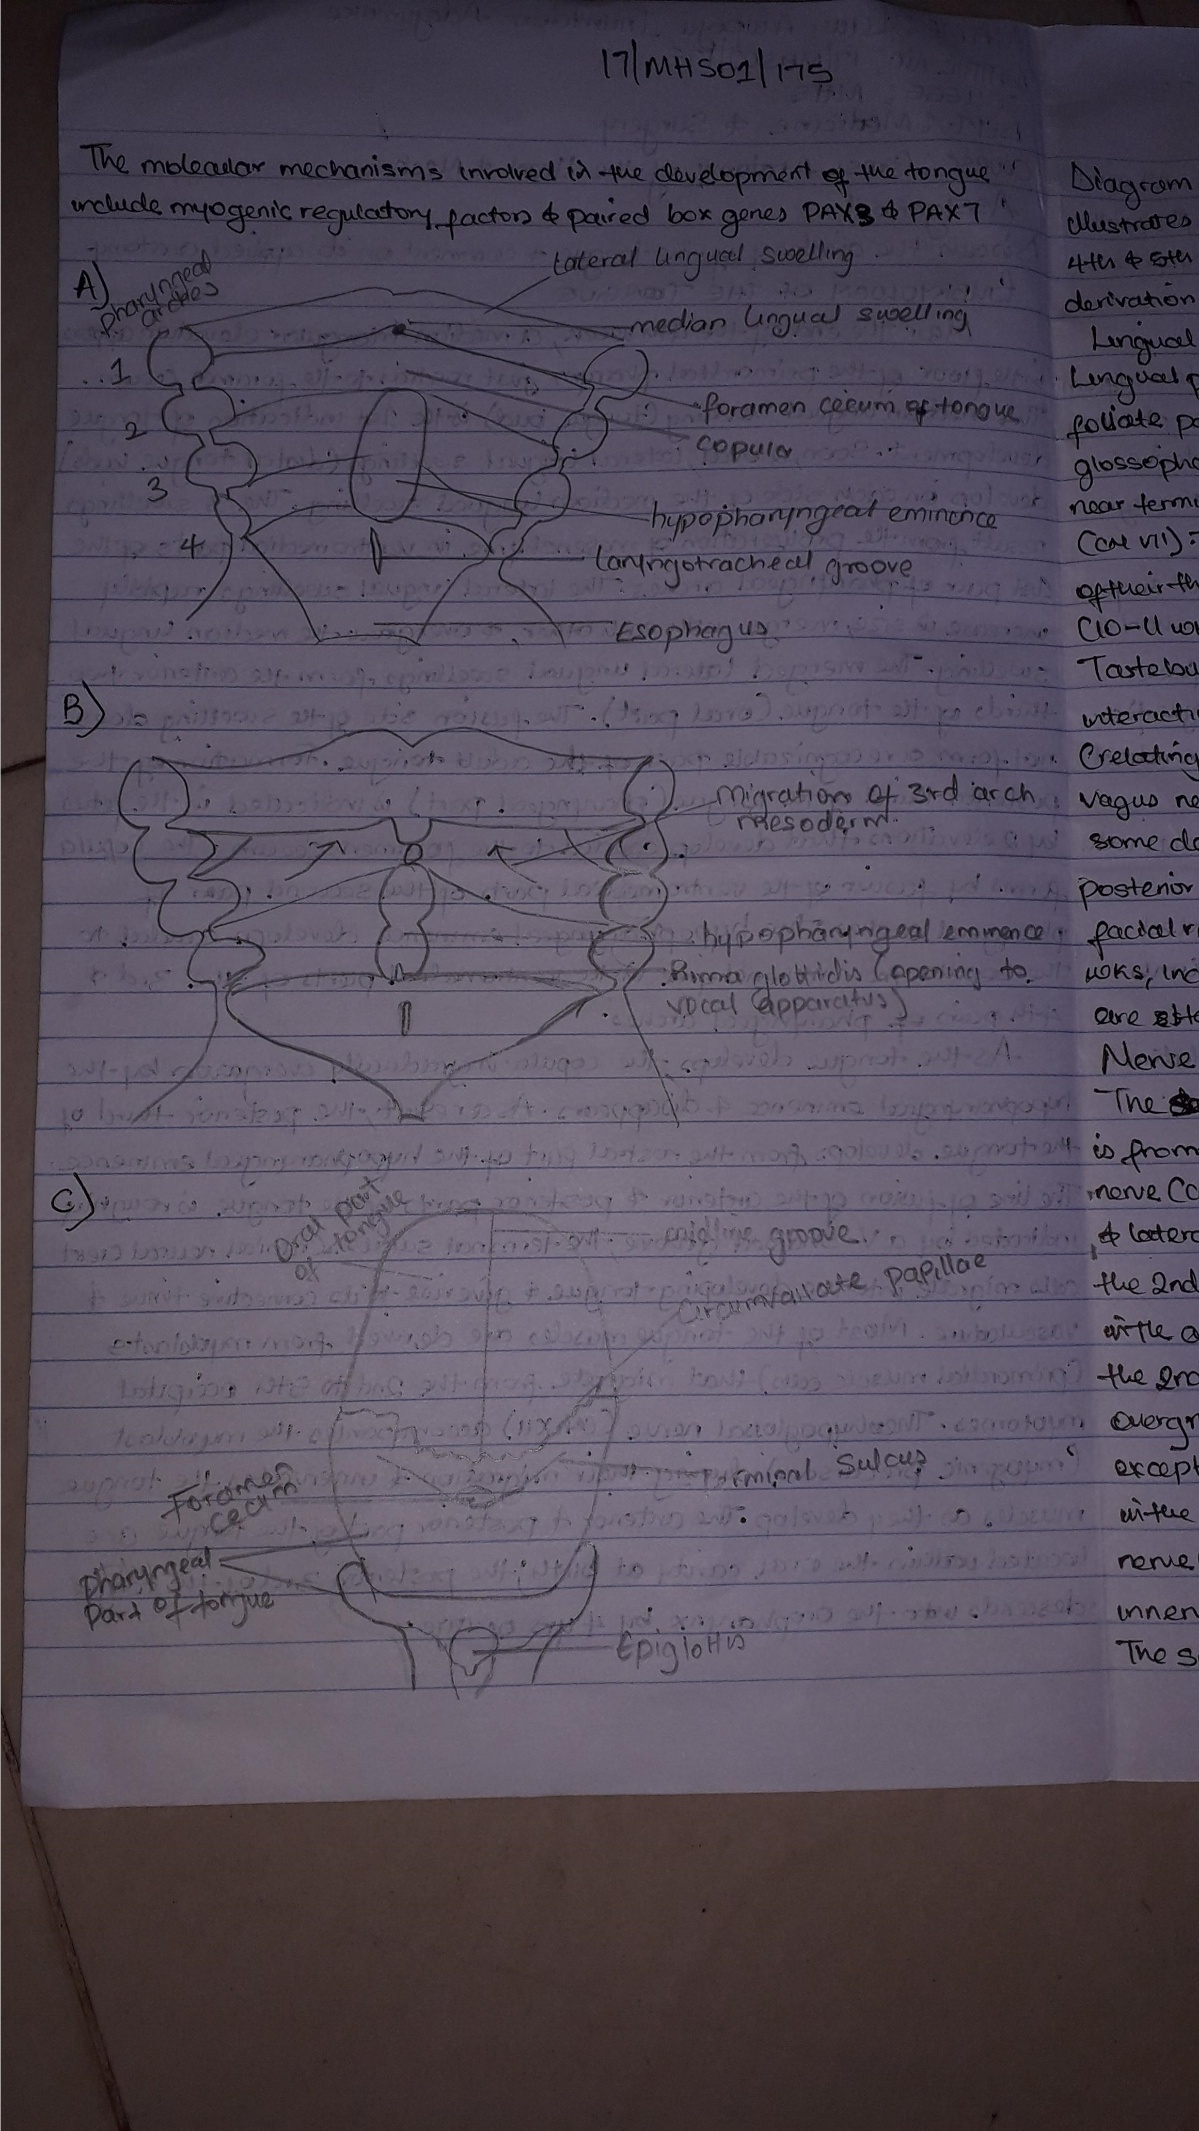 17/MHS01/175
The molecular mechanisms involved in the development of the tongue
include myogenic regulatory factors & paired box genes PAX3 & PAX7
A)
Pharyngeal
arches
Lateral lingual swelling
median lingual swelling
1
foramen cecum of tongue
2
copula
3
hypopharyngeal eminence
4
Laryngotracheal groove
Esophagus
B)
Migration of 3rd arch
mesoderm
hypopharyngeal eminence
Rima glottidis (opening to
vocal apparatus)
C)
Oral part
of tongue
midline groove
Circumvallate papillae
Terminal Sulcus
Foramen
cecum
Pharyngeal
Part of tongue
Epiglottis
Diagram
illustrates
4th & 5th
derivation
Lingual
Lingual p
foliate pa
glossopha
near termi
(CN VII)
of their th
(10-11 wo
Tastebu
interacti
(relating
vagus ne
some de
posterior
facial r
are
Nerve
The
is from
nerve (C
& latera
the 2nd
the 2nd
overgr
except
in the
nerve
innen
The s